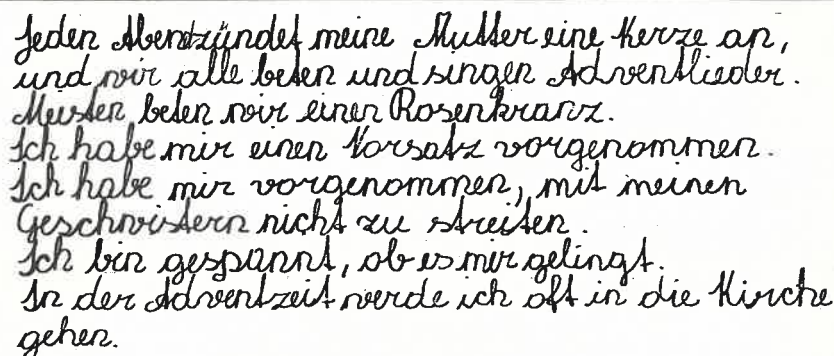 Jeden Abend zündet meine Mutter eine Kerze an,
und wir alle beten und singen Adventlieder.
Meisten beten wir einen Rosenkranz.
Ich habe mir einen Vorsatz vorgenommen.
Ich habe mir vorgenommen, mit meinen
Geschwistern nicht zu streiten.
Ich bin gespannt, ob es mir gelingt.
In der Adventzeit werde ich oft in die Kirche
gehen.